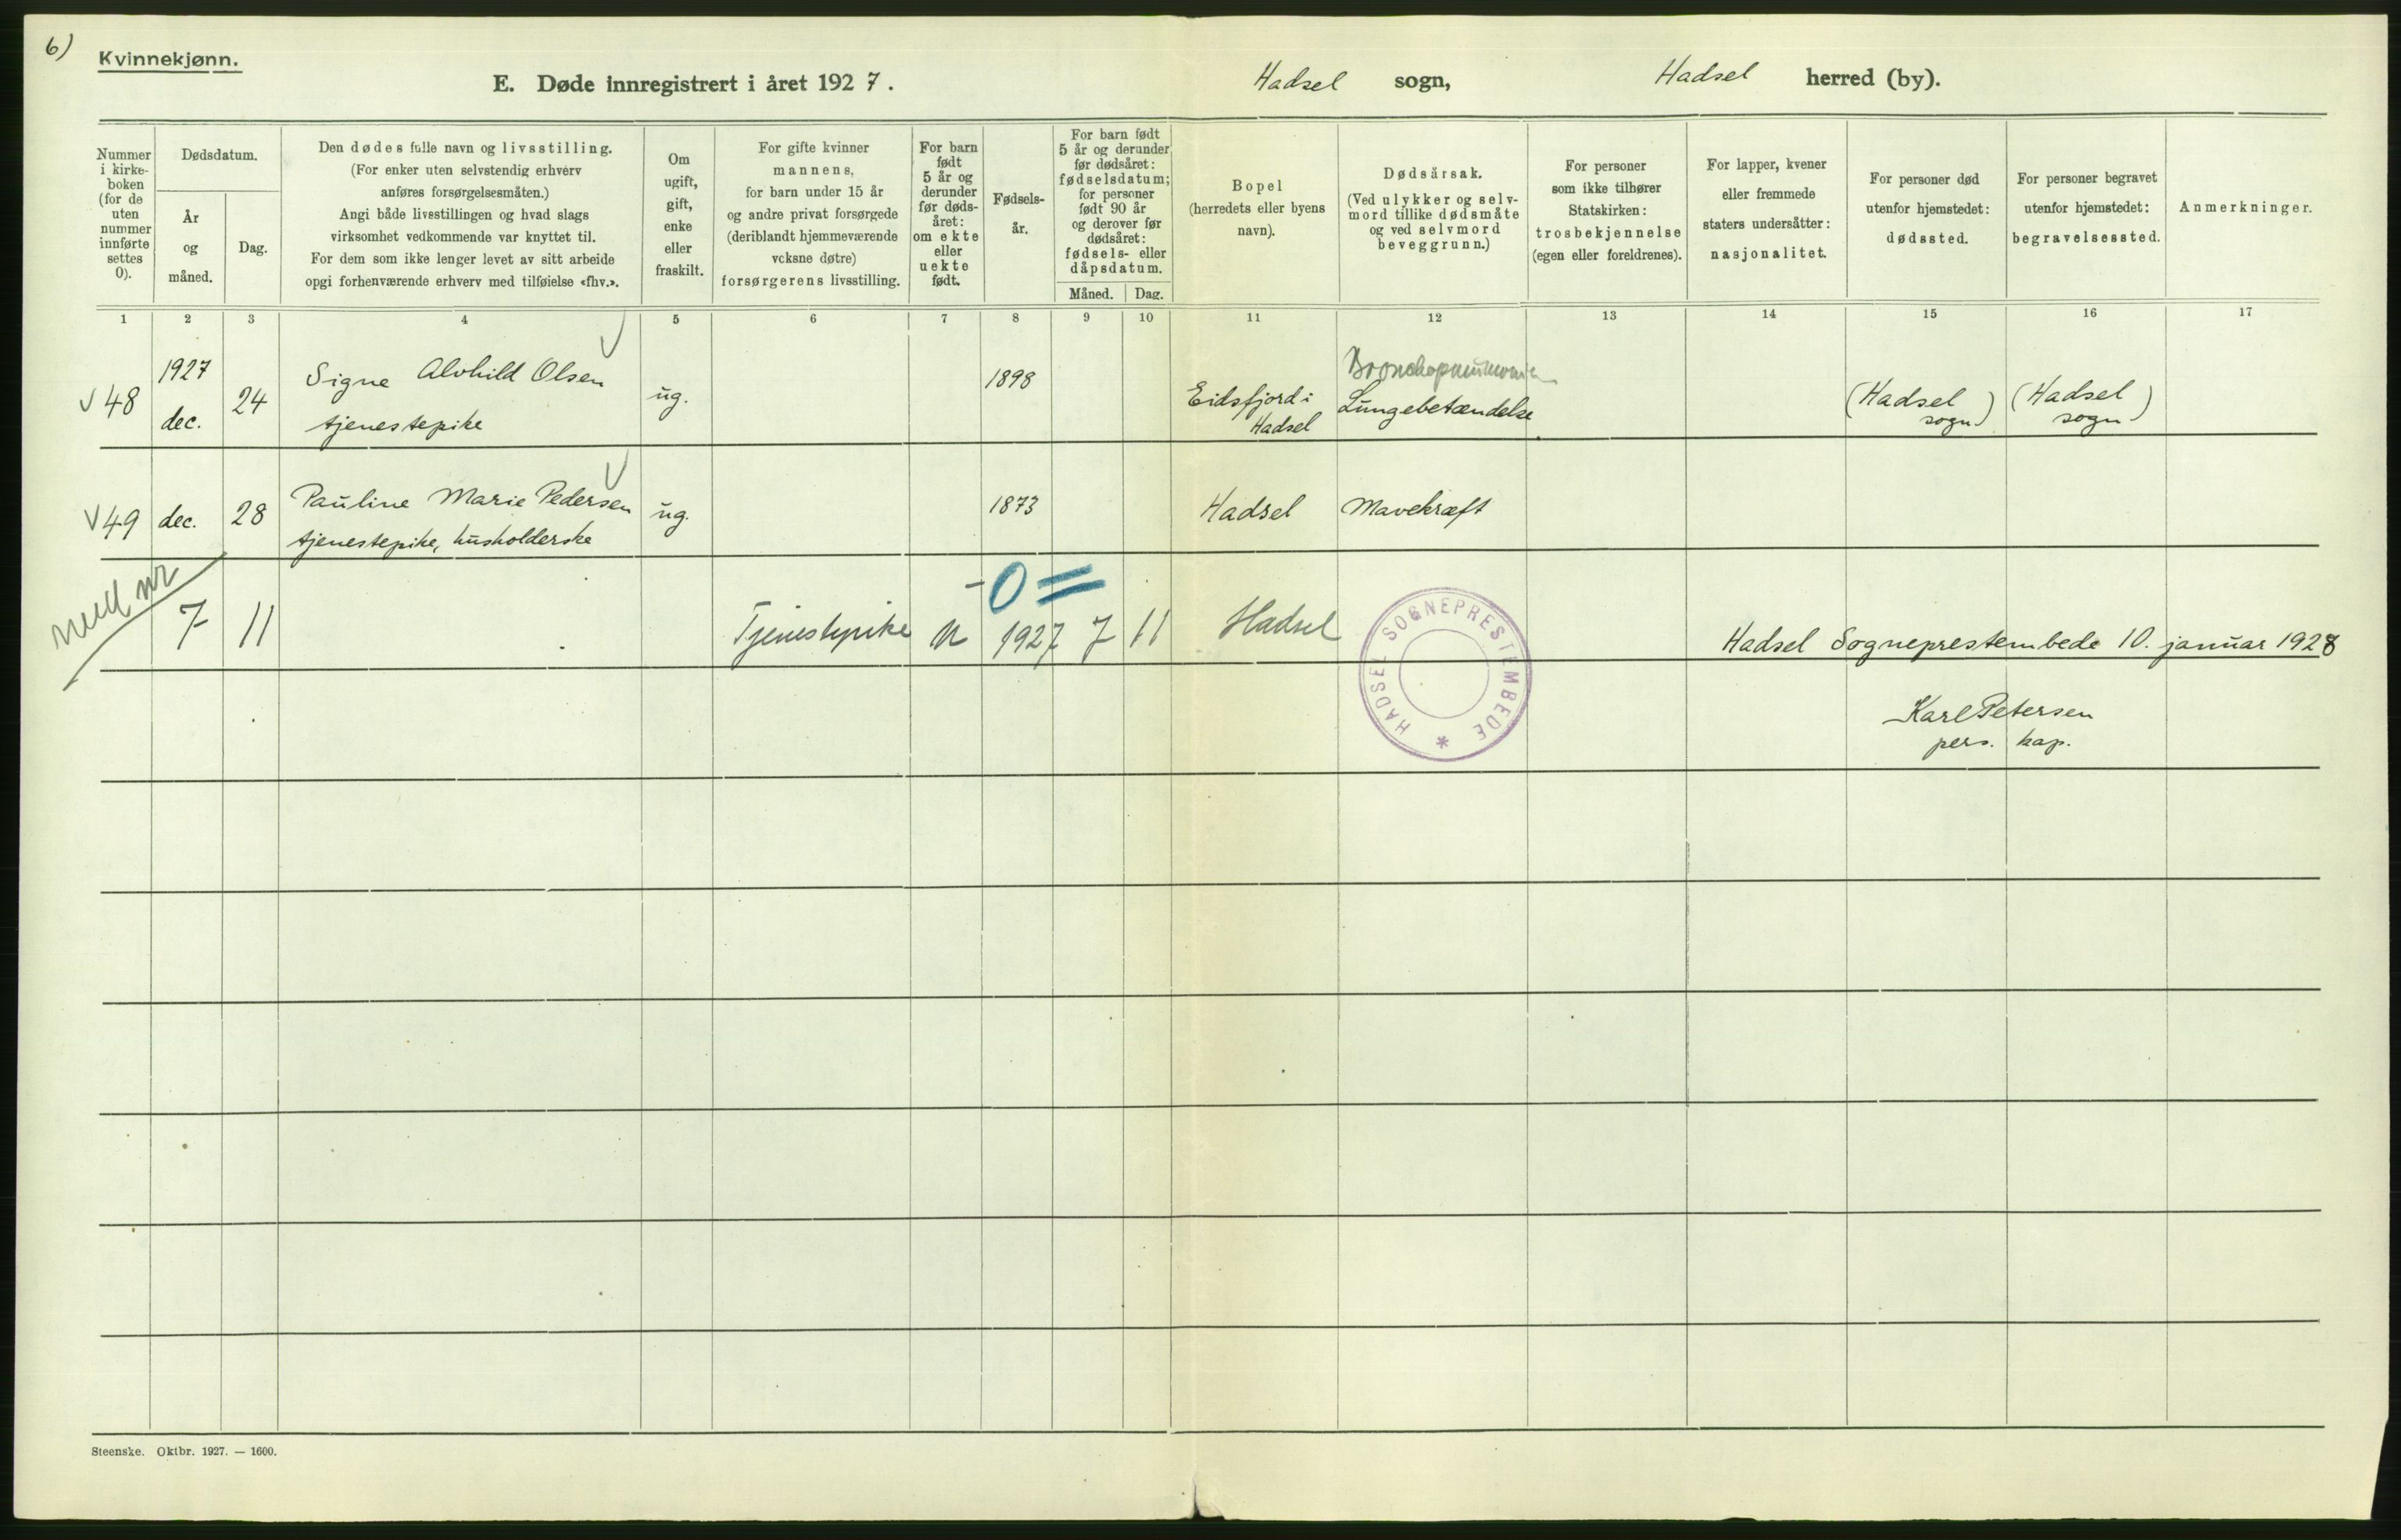 6)
Kvinnekjønn.
E. Døde innregistrert i året 1927.
Hadsel sogn, Hadsel herred (by).
Nummer
i kirke-
boken
(for de
uten
nummer
innførte
settes
0).
Dødsdatum.
År
og
måned.
Dag.
Den dødes fulle navn og livsstilling.
(For enker uten selvstendig erhverv
anføres forsørgelsesmåten.)
Angi både livsstillingen og hvad slags
virksomhet vedkommende var knyttet til.
For dem som ikke lenger levet av sitt arbeide
opgi forhenværende erhverv med tilføielse «fhv.».
Om
ugift,
gift,
enke
eller
fraskilt.
For gifte kvinner
mannens,
for barn under 15 år
og andre privat forsørgede
(deriblandt hjemmeværende
voksne døtre)
forsørgerens livsstilling.
For barn
født
5 år og
derunder
før døds-
året:
om ekte
eller
uekte
født.
Fødsels-
år.
For barn født
5 år og derunder
før dødsåret:
fødselsdatum;
for personer
født 90 år
og derover før
dødsåret:
fødsels- eller
dåpsdatum.
Måned. Dag.
Bopel
(herredets eller byens
navn).
Dødsårsak.
(Ved ulykker og selv-
mord tillike dødsmåte
og ved selvmord
beveggrunn.)
For personer
som ikke tilhører
Statskirken:
trosbekjennelse
(egen eller foreldrenes).
For lapper, kvener
eller fremmede
staters undersåtter:
nasjonalitet.
For personer død
utenfor hjemstedet:
dødssted.
For personer begravet
utenfor hjemstedet:
begravelsessted.
Anmerkninger.
1 2 3 4 5 6 7 8 9 10 11 12 13 14 15 16 17
√ 48
1927
dec.
24
Signe Alvhild Olsen
tjenestepike
ug.
1898
Eidsfjord i
Hadsel
Bronchopneumonia
Lungebetændelse
(Hadsel
sogn)
(Hadsel
sogn)
√ 49
dec.
28
Pauline Marie Pedersen
tjenestepike, husholderske
ug.
1873
Hadsel
Mavekræft
null nr
7
11
Tjenestepike
u
-0=
1927
7
11
Hadsel
HADSEL SOGNEPRESTEMBEDE *
Hadsel Sogneprestembede 10. januar 1928
Karl Petersen
pers. kap.
Steenske. Oktbr. 1927. — 1600.